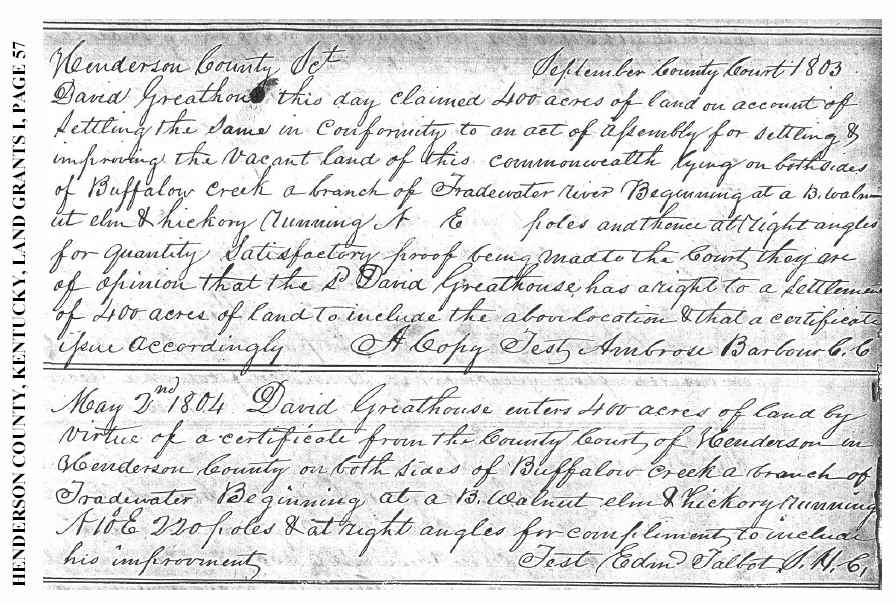 HENDERSON COUNTY, KENTUCKY, LAND GRANTS I, PAGE 57
Henderson County Sct September County Court 1803
David Greathouse this day claimed 400 acres of land on account of
settling the same in conformity to an act of Assembly for settling &
improving the vacant land of this commonwealth lying on both sides
of Buffalow creek a branch of Tradewater river Beginning at a B. waln-
ut elm & hickory running N E poles and thence at right angles
for quantity Satisfactory proof being made to the Court they are
of opinion that the sd David Greathouse has a right to a settlement
of 400 acres of land to include the above location & that a certificate
issue accordingly A Copy Test, Ambrose Barbour C. C
May 2nd 1804 David Greathouse enters 400 acres of land by
virtue of a certificate from the County Court, of Henderson in
Henderson County on both sides of Buffalow creek a branch of
Tradewater Beginning at a B. Walnut elm & hickory running
N 10° E 220 poles & at right angles for compliment, to include
his improvment, Test, Edmd Talbot S. H. C,